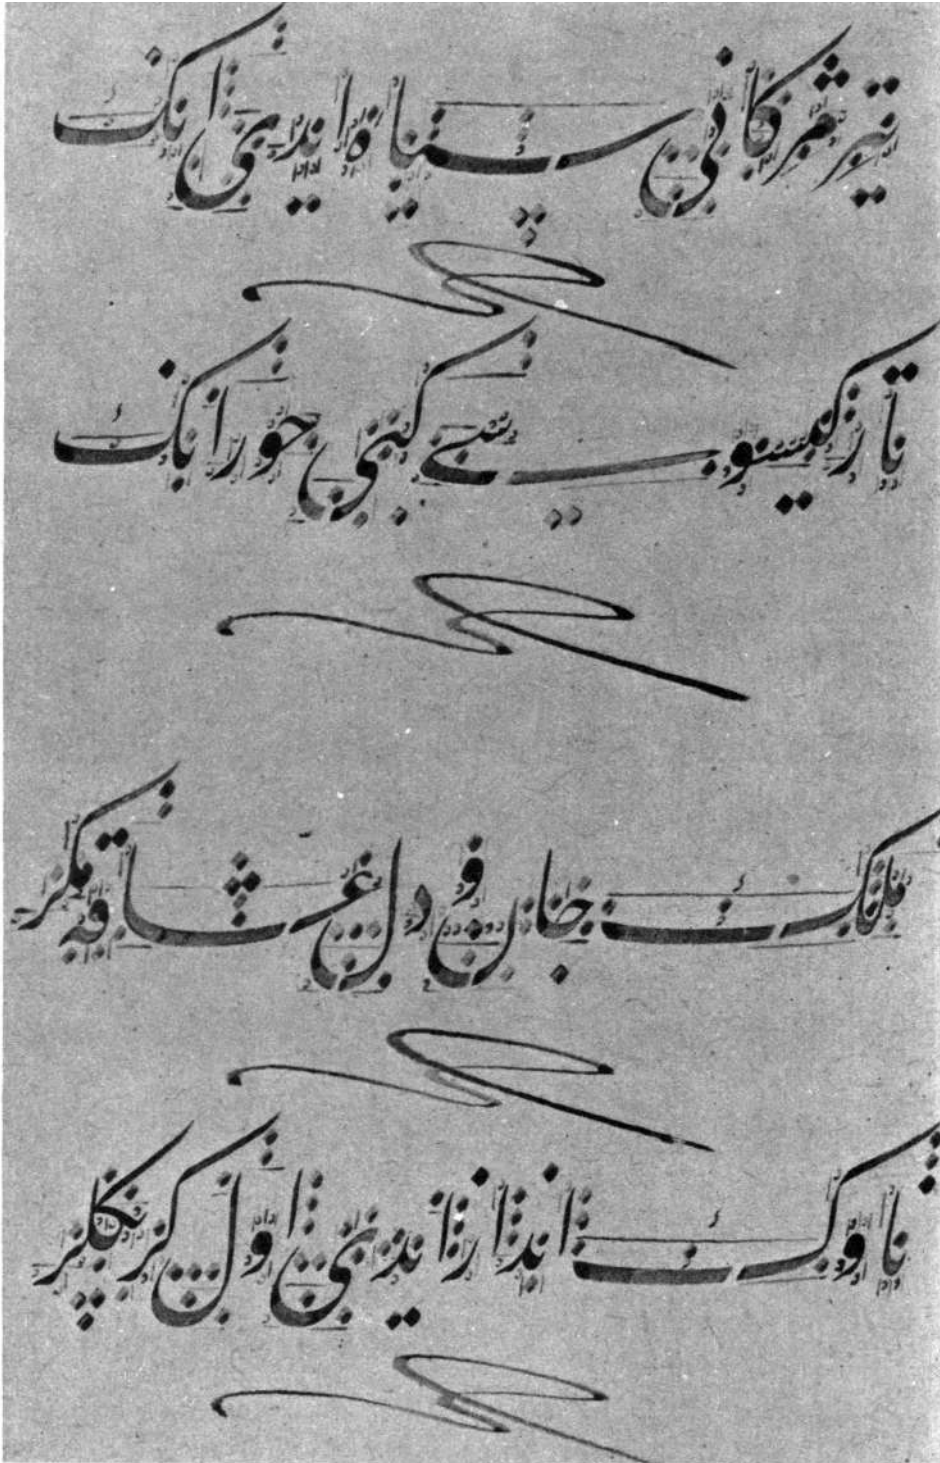 تیر مژکانی سیاه ایدی انک
تار کیسوسی کبی حورانک
ملک جان و دل عشاقه مکر
ناوک انداز ایدی اول کرپکلر